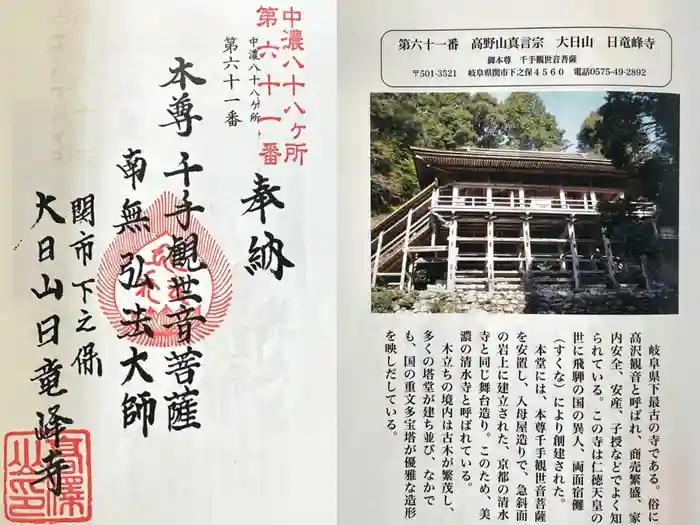 中濃八十八ヶ所
第六十一番
中濃八十八ヶ所
第六十一番
奉納
本尊 千手観世音菩薩
南無 弘法大師
関市下之保
大日山日竜峰寺
第六十一番 高野山真言宗 大日山 日竜峰寺
御本尊 千手観世音菩薩
〒501-3521 岐阜県関市下之保4560 電話0575-49-2892
岐阜県下最古の寺である。俗に
高沢観音と呼ばれ、商売繁盛、家
内安全、安産、子授などでよく知
られている。この寺は仁徳天皇の
世に飛騨の国の異人、両面宿儺
(すくな)により創建された。
本堂には、本尊千手観世音菩薩
を安置し、入母屋造りで、急斜面
の岩上に建立された、京都の清水
寺と同じ舞台造り。このため、美
濃の清水寺と呼ばれている。
木立ちの境内は古木が繁茂し、
多くの塔堂が建ち並び、なかで
も、国の重文多宝塔が優雅な造形
を映しだしている。